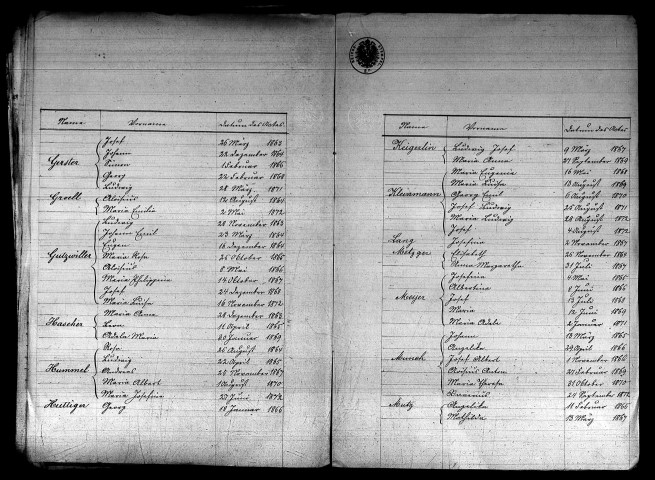 Name Vorname Datum des Actes
Josef 26 März 1863
Johann 22 Dezember 1864
Gerster Simon 1 Februar 1866
Georg 24 Februar 1868
Ludwig 28 März 1871
Aloisius August 1861
Maria Emilie 2 Mai 1872
Ludwig 28 November 1863
Johann Emil 23 März 1864
Eugen 16 Dezember 1864
Gutzwiller Maria Rosa 25 Oktober 1865
Aloisius 8 Mai 1866
Maria Philippina 14 Oktober 1867
Josef 24 Dezember 1868
Maria Luise 16 November 1872
Maria Anna 28 Dezember 1863
Hascher Leon 11 April 1865
Adela Maria Januar 1869
Rosa 26 August 1864
Ludwig 22 April 1865
Hummel Andreas 28 November 1867
Maria Albert August 1870
Maria Josefina Juni 1872
Huttiger Georg 18 Januar 1866
Name Vorname Datum des Actes
Keigerlin Ludwig Josef 9 März 1867
Maria Anna 27 September 1869
Maria Eugenia 16 Mai 1868
Maria Luise 13 August 1869
Kleinmann Georg Emil 6 August 1870
Josef Ludwig 25 August 1871
Maria Ludwig 28 August 1872
Josef 4 August 1872
Lang Josefina 2 November 1867
Metzger Elisabeth 25 November 1864
Anna Margaretha 31 Juli 1867
Josefina 4 Mai 1865
Albertina 8 Juni 1866
Meyer Josef 13 Juli 1868
Maria 12 Juni 1869
Maria Adela 2 Januar 1871
Johann 13 März 1865
Angelika 29 April 1866
Munch Josef Albert 1 November 1866
Anton 27 Februar 1869
Maria Theresa 31 Oktober 1870
29 September 1872
Mutz Angelika 18 Februar 1866
Mathilda 13 März 1867